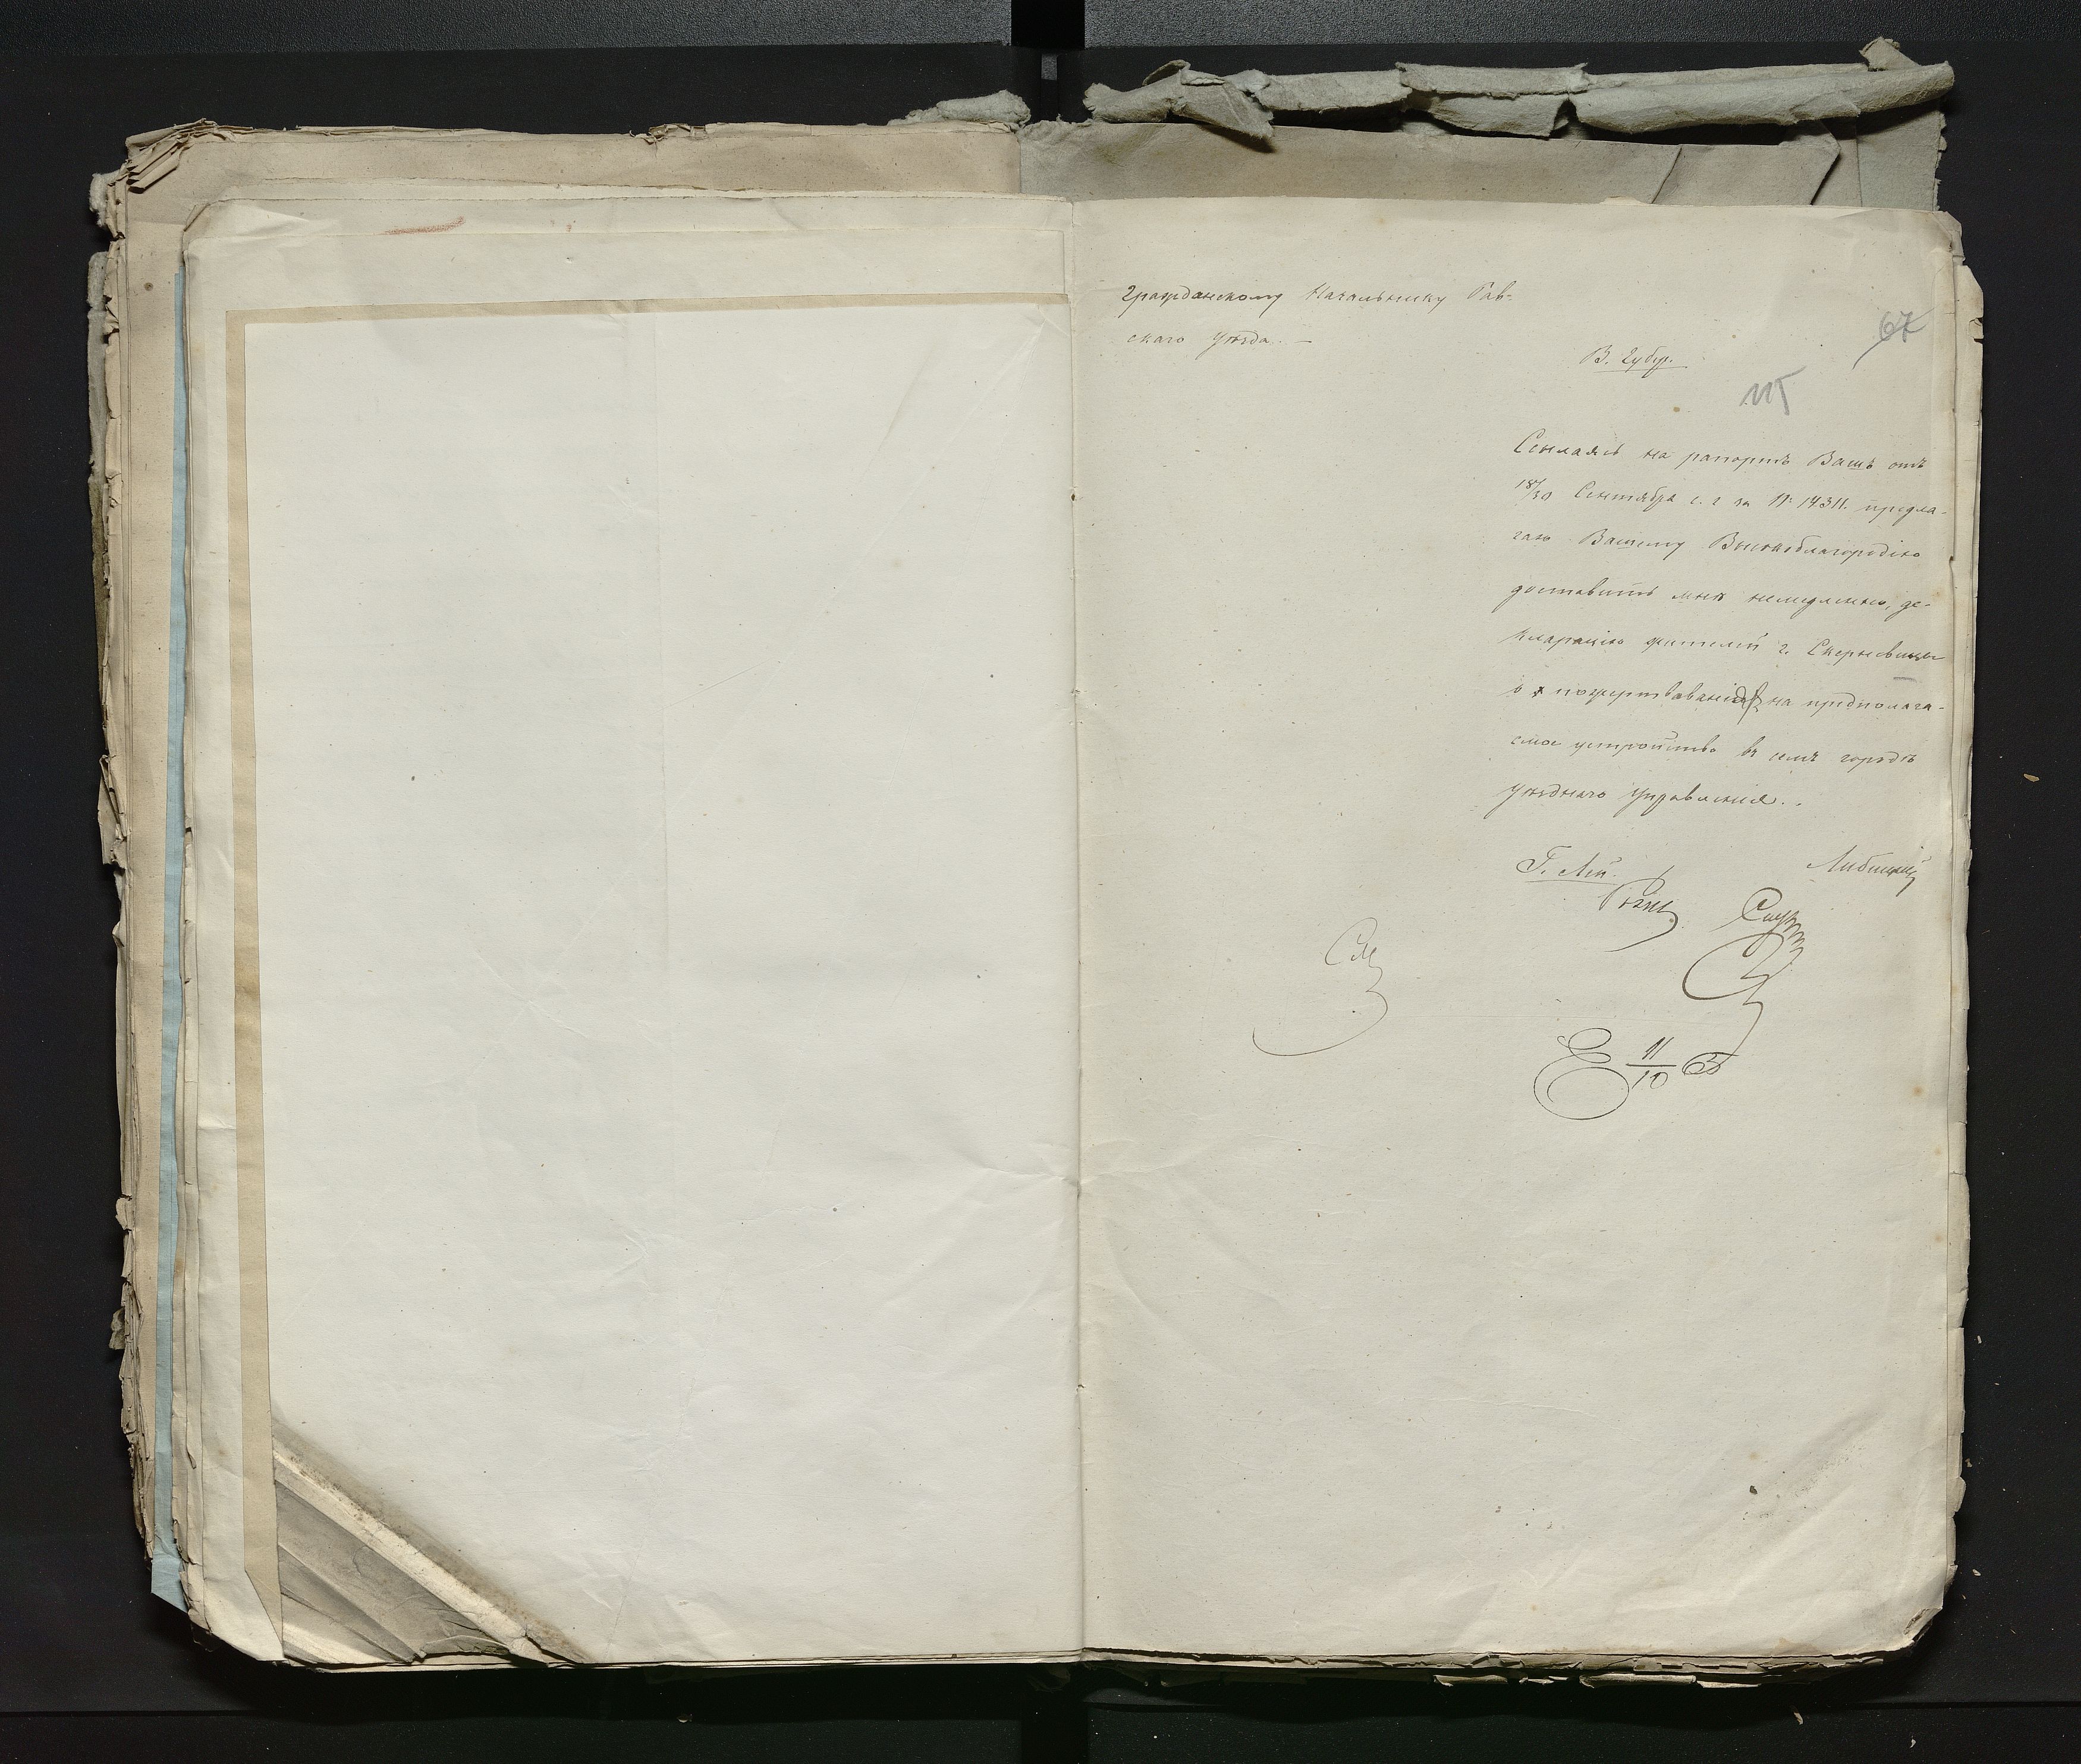 Гражданскому Начальнику Рав-
скаго уѣзда. —
67
В. Губер.
115
Ссылаясь на рапортъ Вашъ отъ
18/30 Сентября с. г за № 14311. предла-
гаю Вашему Высокоблагородію
доставить мнѣ немедленно, де-
кларацію жителей г. Скерневицъ
о пожертвованіях на предполага-
емое устройство въ семъ городѣ
уѣзднаго управленія..
Либицкій
11/10